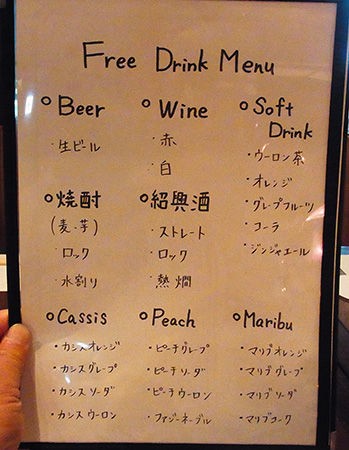 Free Drink Menu
○ Beer
・生ビール
○ Wine
・赤
・白
○ Soft Drink
・ウーロン茶
・オレンジ
・グレープフルーツ
・コーラ
・ジンジャエール
○ 焼酎
(麦・芋)
・ロック
・水割り
○ 紹興酒
・ストレート
・ロック
・熱燗
○ Cassis
・カシスオレンジ
・カシスグレープ
・カシスソーダ
・カシスウーロン
○ Peach
・ピーチグレープ
・ピーチソーダ
・ピーチウーロン
・ファジーネーブル
○ Maribu
・マリブオレンジ
・マリブグレープ
・マリブソーダ
・マリブコーク